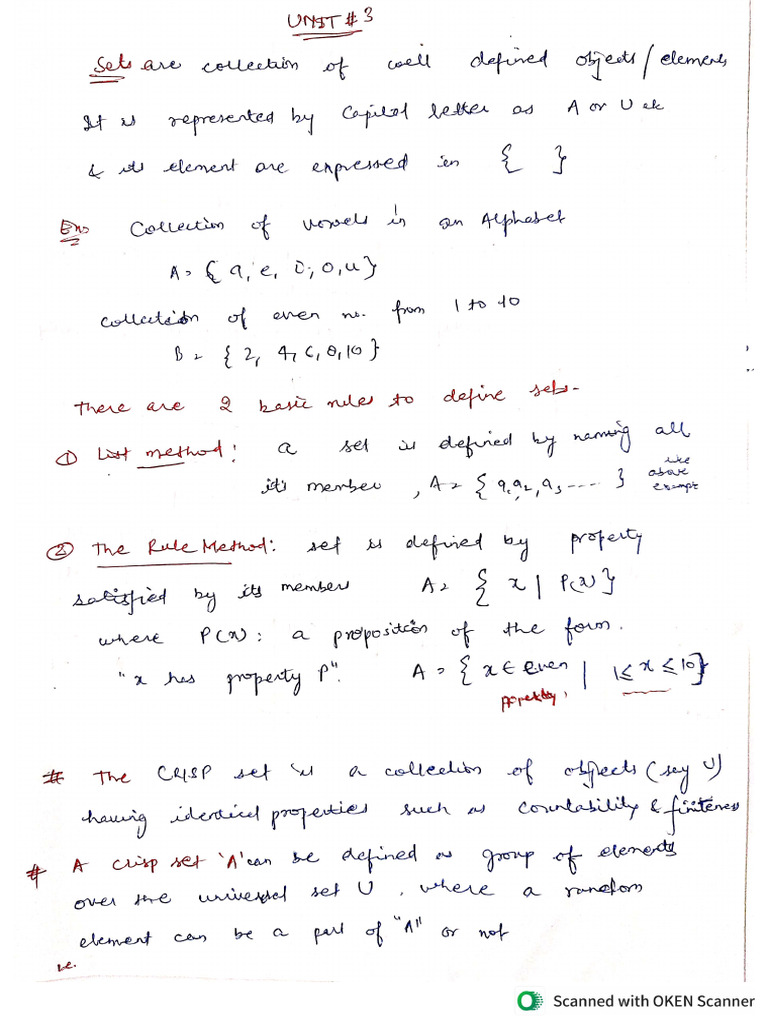 UNIT # 3
Sets are collection of well defined objects / elements
It is represented by Capital letter as A or U etc
& its element are expressed in { }
Ex: Collection of vowels in an Alphabet
A = { a, e, i, o, u }
collection of even no. from 1 to 10
B = { 2, 4, 6, 8, 10 }
There are 2 basic rules to define sets-
① List method: a set is defined by naming all
its member , A = { a1, a2, a3 ---- } like above exampt
② The Rule Method: set is defined by property
satisfied by its member A = { x | P(x) }
where P(x): a proposition of the form.
"x has property P". A = { x ∈ even | 1 ≤ x ≤ 10 }
# The CRISP set is a collection of objects (say U)
having identical properties such as countability & finiteness
# A crisp set 'A' can be defined as group of elements
over the universal set U , where a random
element can be a part of "A" or not
i.e.
Scanned with OKEN Scanner